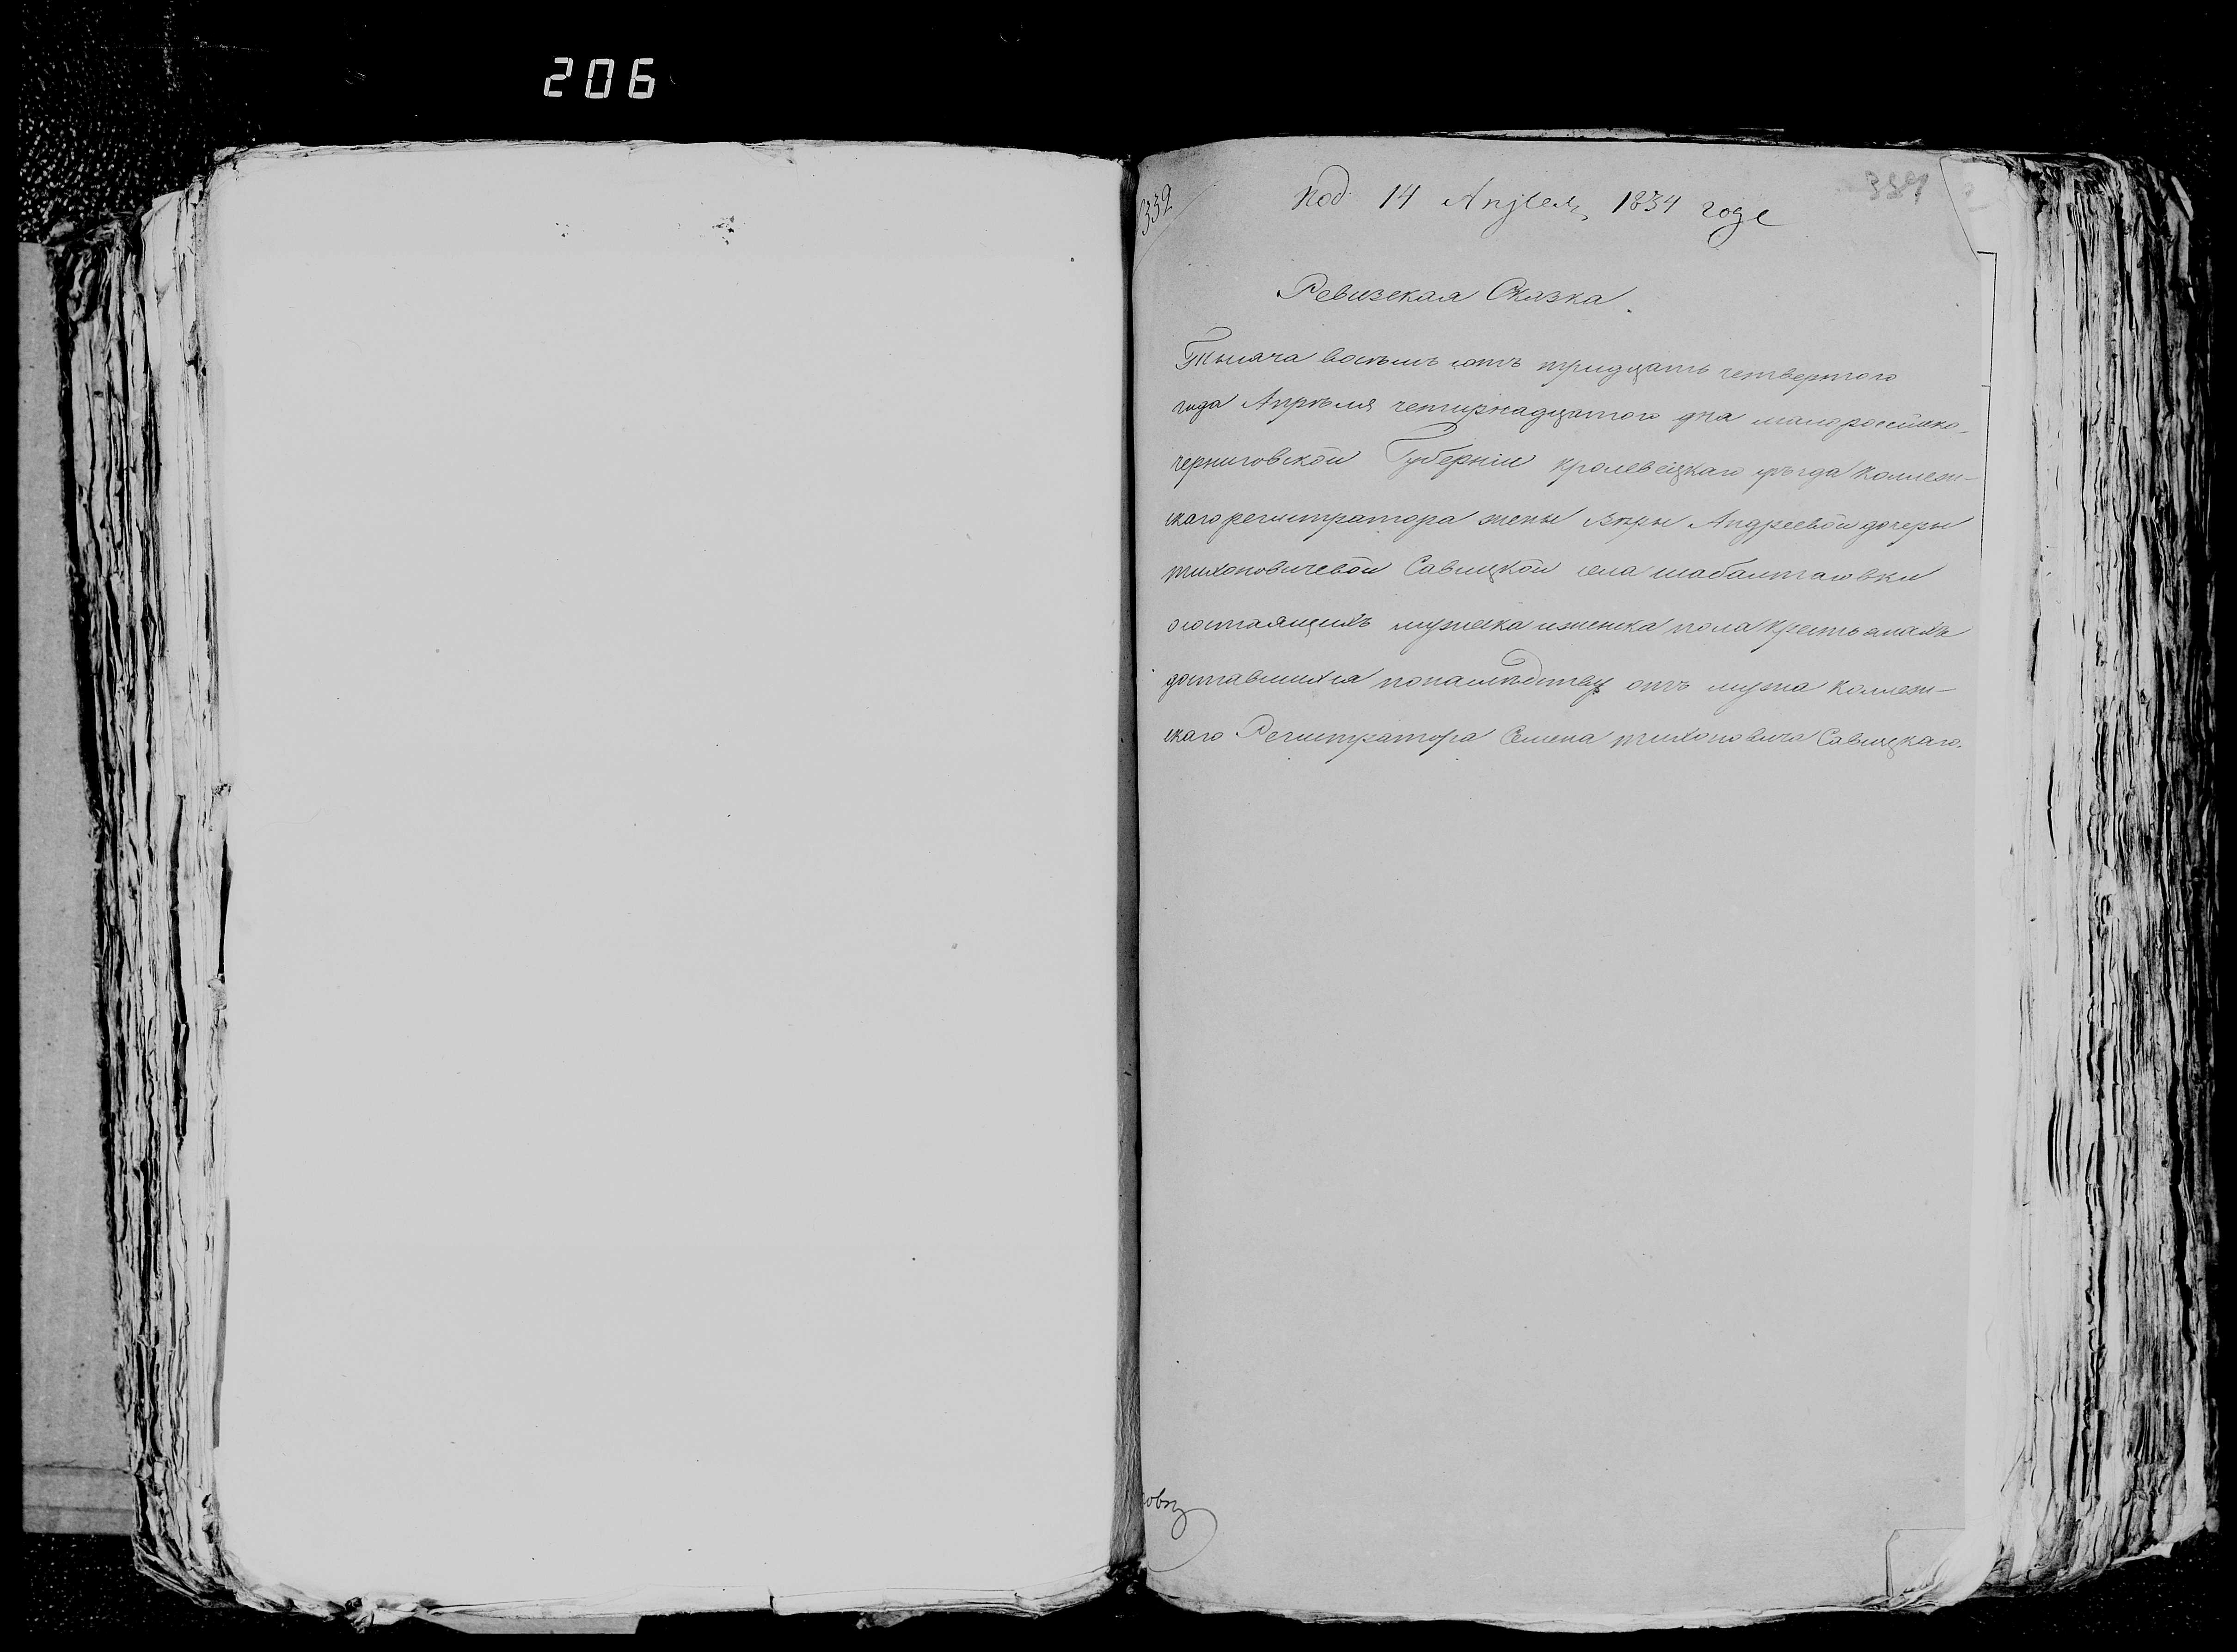 206
332
Под. 14 Апреля 1834 годе
Ревизская Сказка.
Тысяча восемь сотъ тридцать четвертого
года Апреля четирнадцатого дна малороссійско-
черниговской Губерніи кролевецкаго уезда Коллеж-
скаго регистратора жены Веры Андреевой дочеры
тихоновичевой Савицкой села шабалтасовки
осостаящихъ мужеска иженска пола Крестьянахъ
доставшихся понаследству отъ мужа Коллеж-
скаго Регистратора Семена тихоновича Савицкаго.